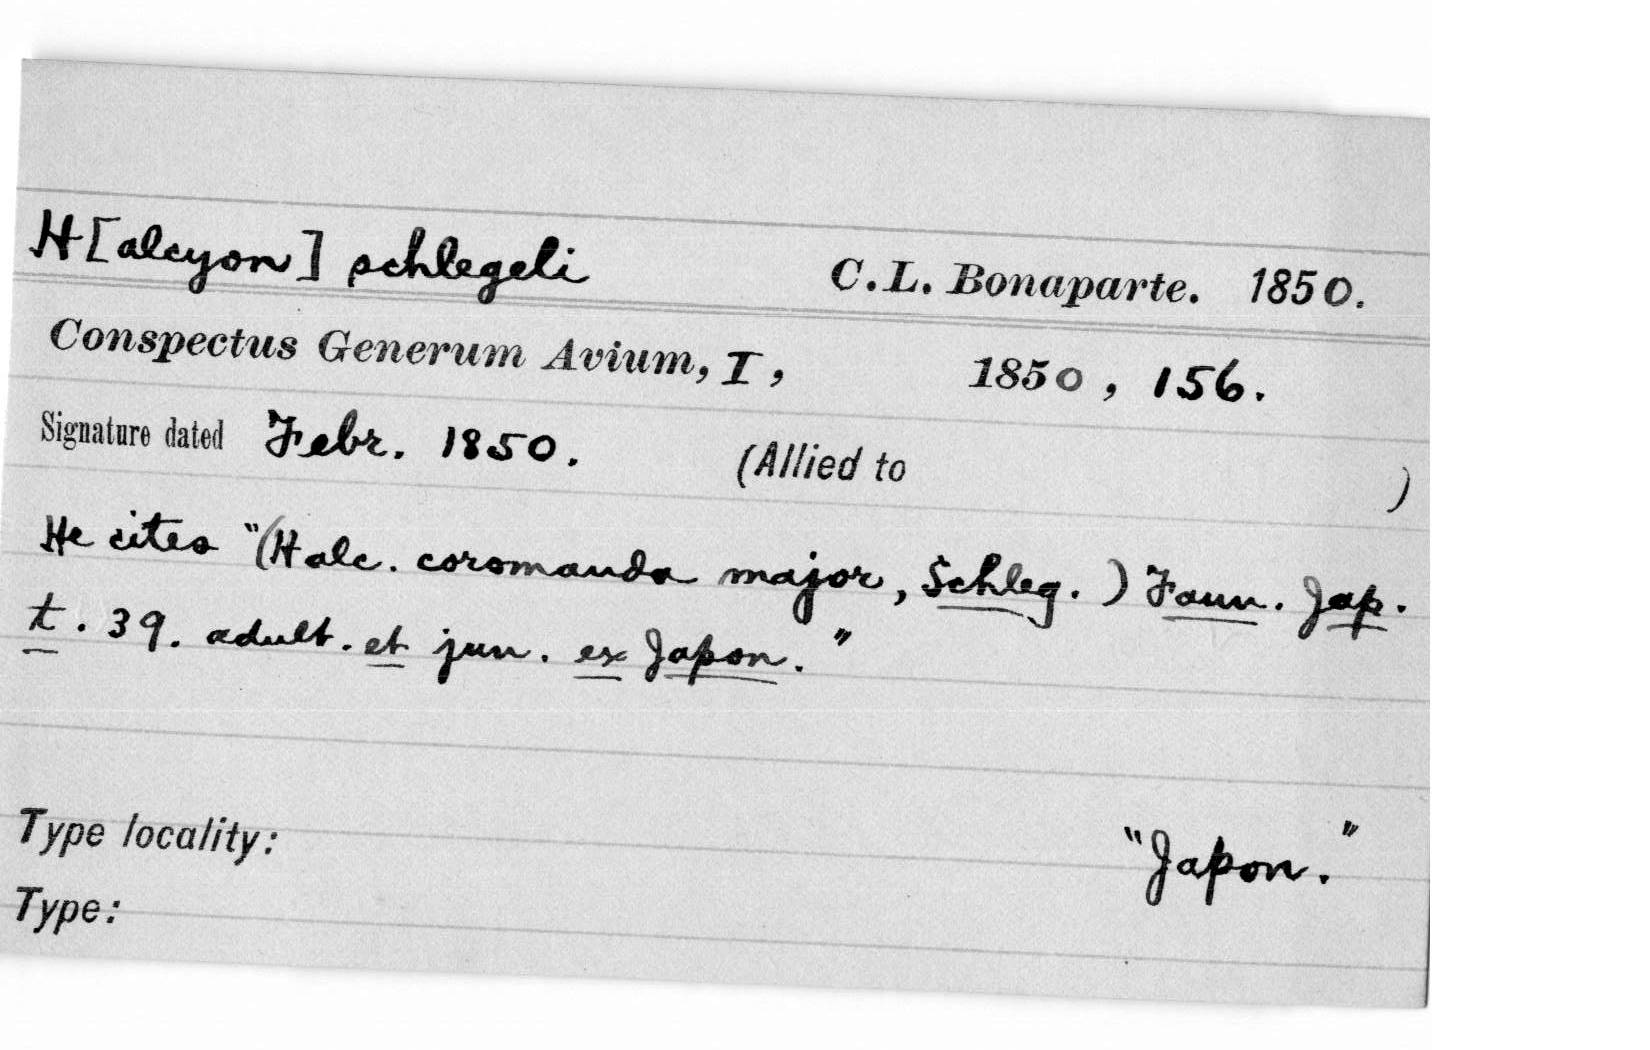 H[alcyon] schlegeli C.L. Bonaparte. 1850.
Conspectus Generum Avium, I, 1850, 156.
Signature dated Febr. 1850. (Allied to )
He cites "(Halc. coromanda major, Schleg.) Faun. Jap.
t. 39. adult. et jun. ex Japon."
Type locality: "Japon."
Type: